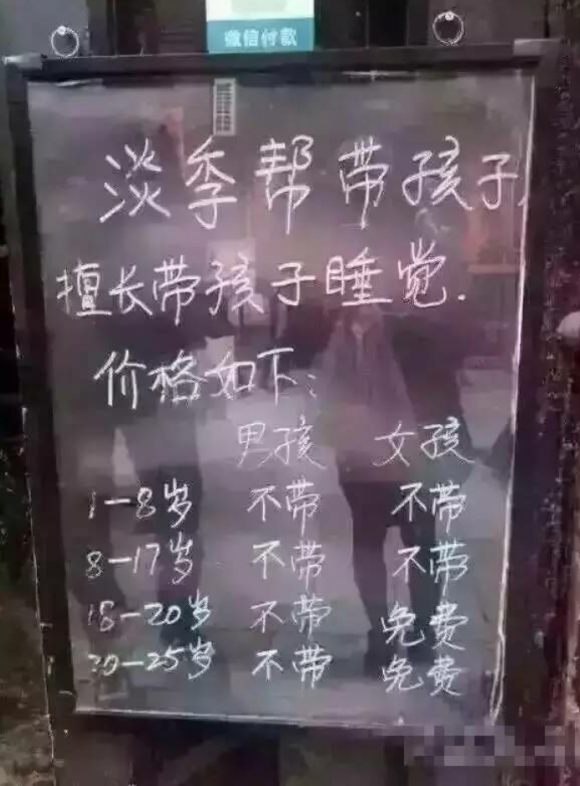 微信付款
淡季帮带孩子
擅长带孩子睡觉.
价格如下:
男孩 女孩
1-8岁 不带 不带
8-17岁 不带 不带
18-20岁 不带 免费
20-25岁 不带 免费